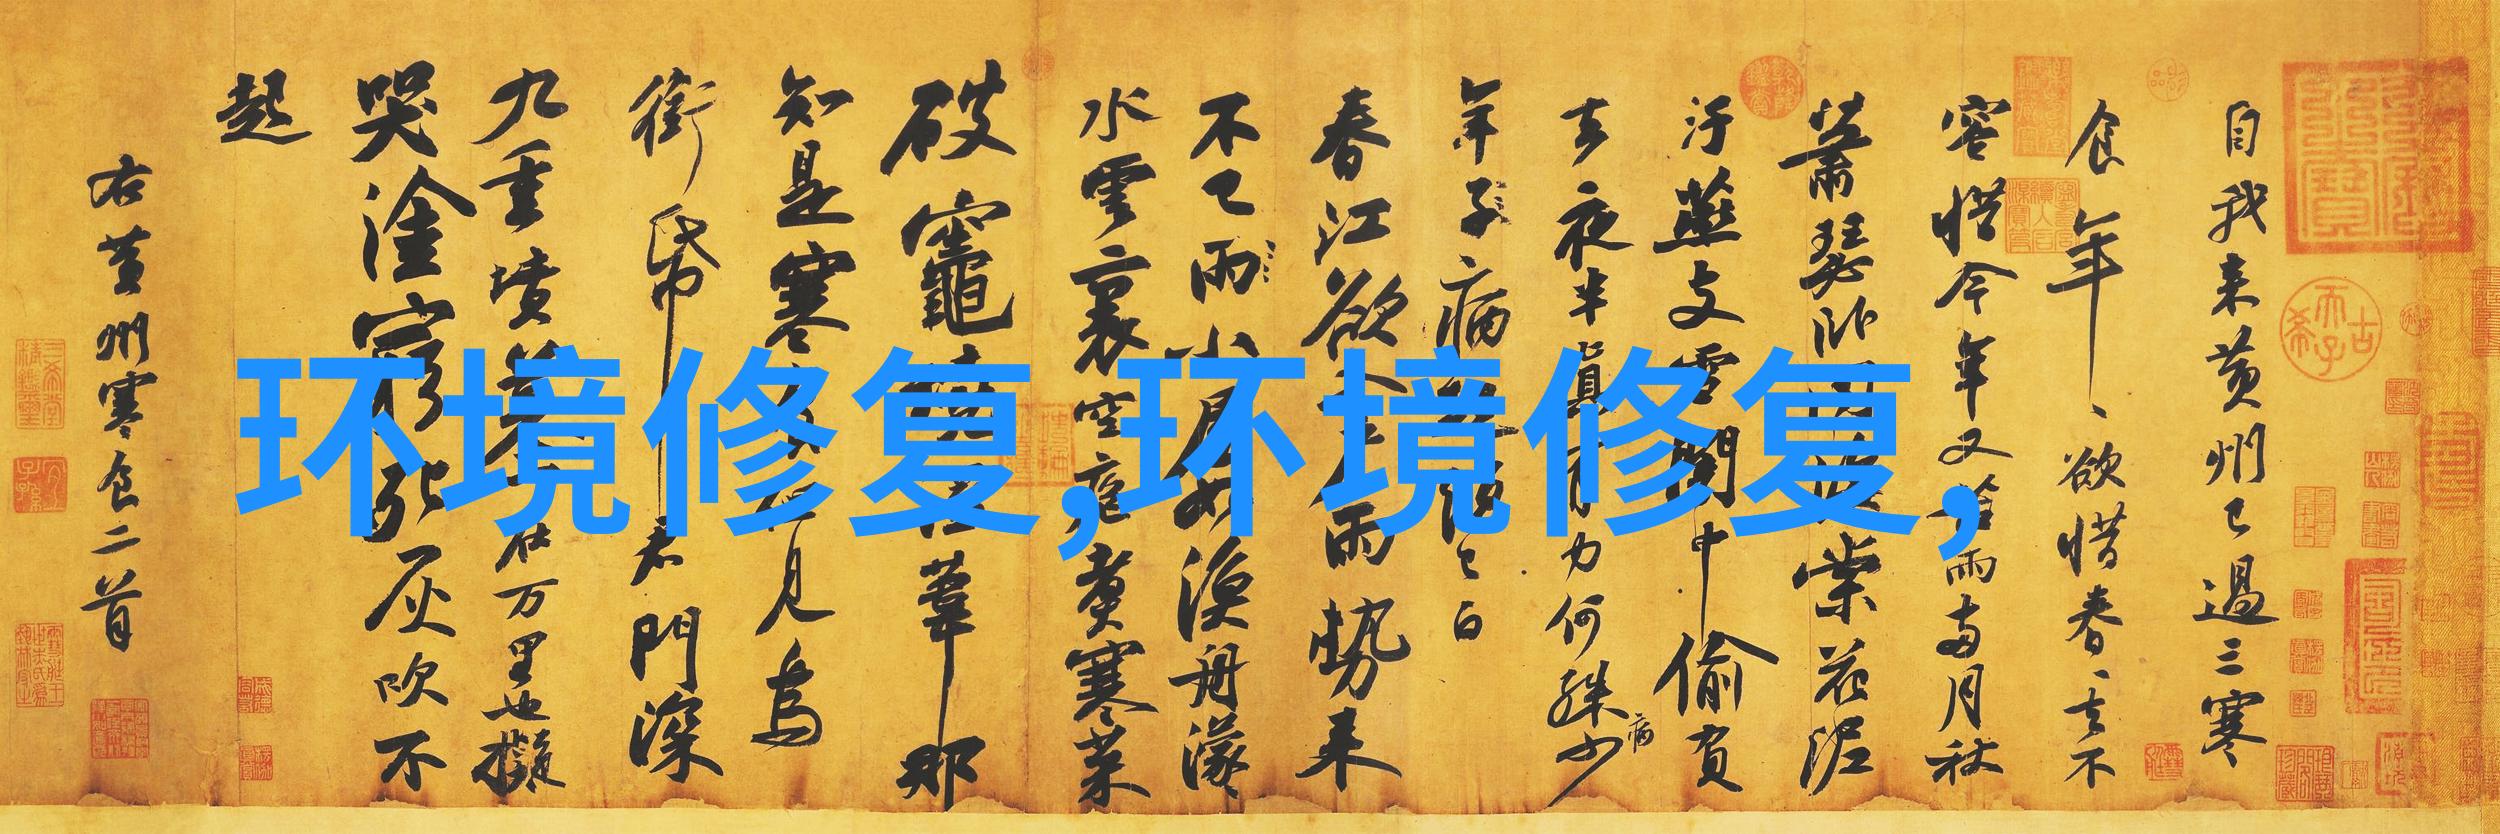 环境修复,环境修复,
自我来黄州已過三寒
食年、欲惜春、去不
容惜今年又苦雨兩月秋
蕭瑟卧聞海棠花泥
汙燕支雪闇中偷負
去夜半真有力何殊少
病
年子病起須已白
春江欲入戶雨勢来
不已雨小屋如漁舟濛
水雲裏空庖煮寒菜
破竈燒濕葦那
知是寒食但見烏
銜帋君門深
九重墳墓在万里也擬
哭塗窮死灰吹不
起
右黄州寒食二首